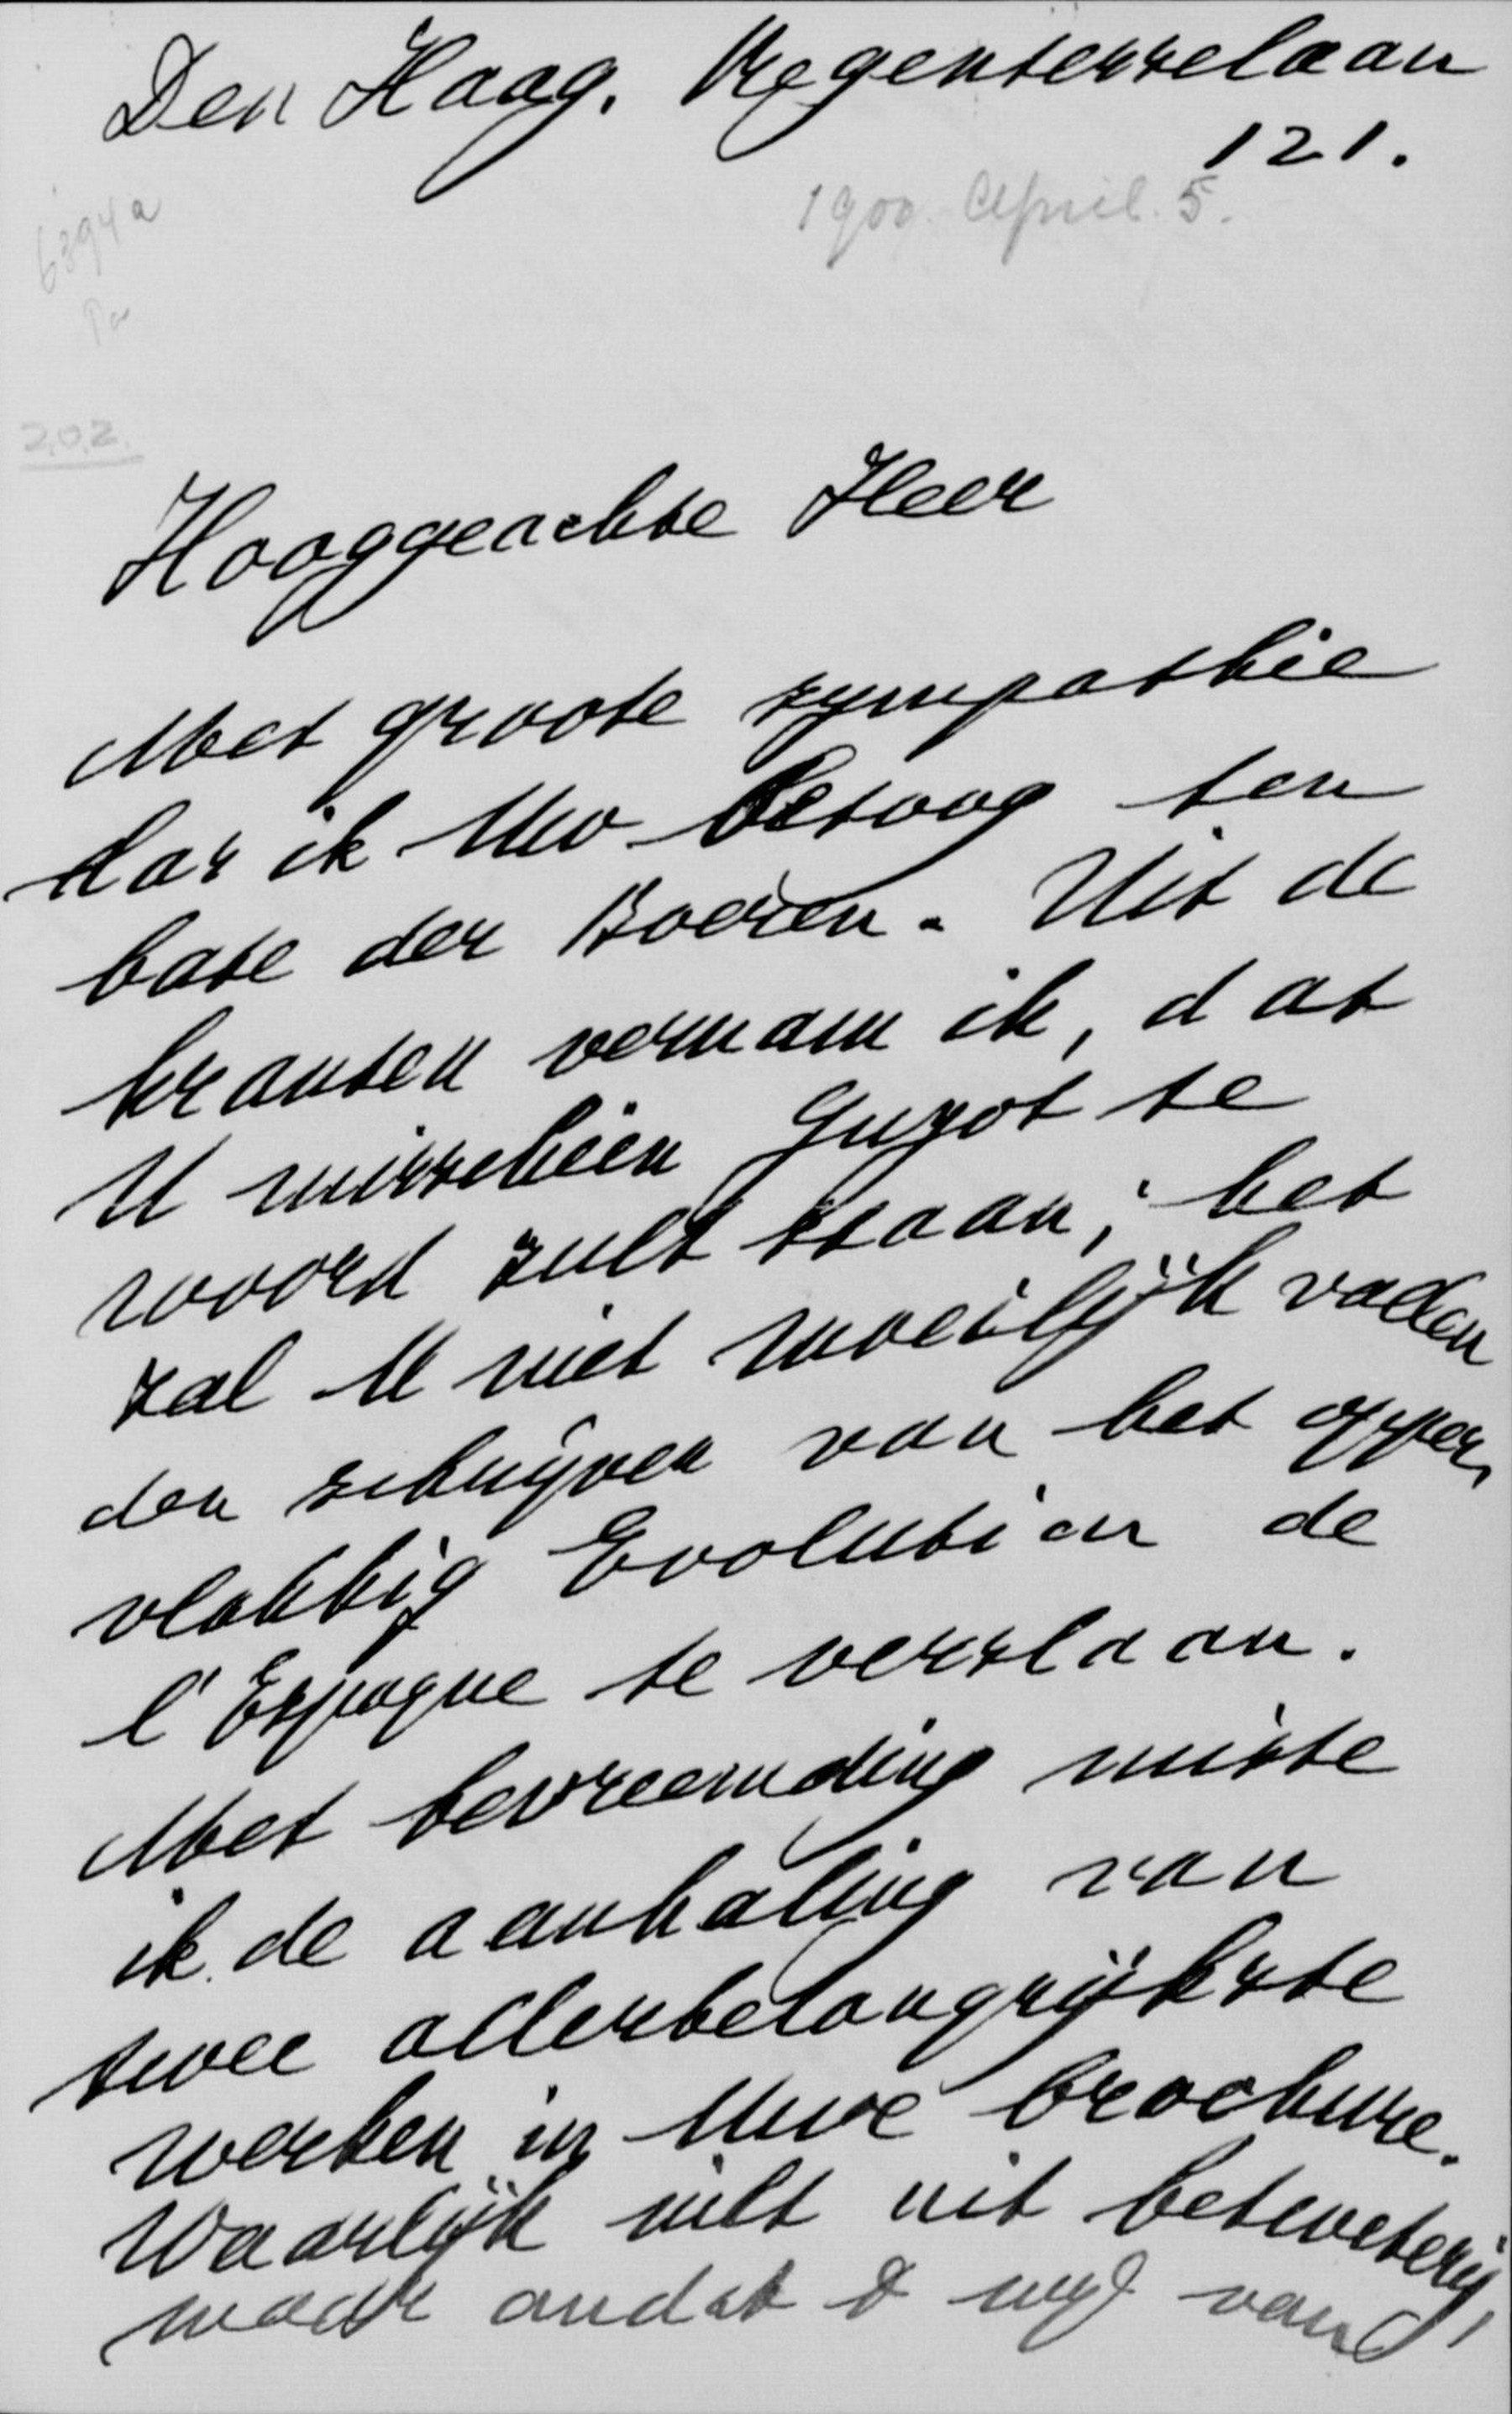 Den Haag. Regentesselaan
121.
1900. April. 5.
6394a
202.
Hooggeachte Heer
Met groote sympathie
las ik Uw betoog ten
bate der Boeren. Uit de
kranten vernam ik, dat
U misschien Guyot te
woord zult staan; het
zal U niet moeilijk vallen
den schrijver van het opper,
vlakkig Evolution de
l'Espagne te verslaan.
Met bevreemding miste
ik de aanhaling van
twee allerbelangrijkste
werken in Uwe brochure.
Waarlijk niet uit betweterij,
maar omdat